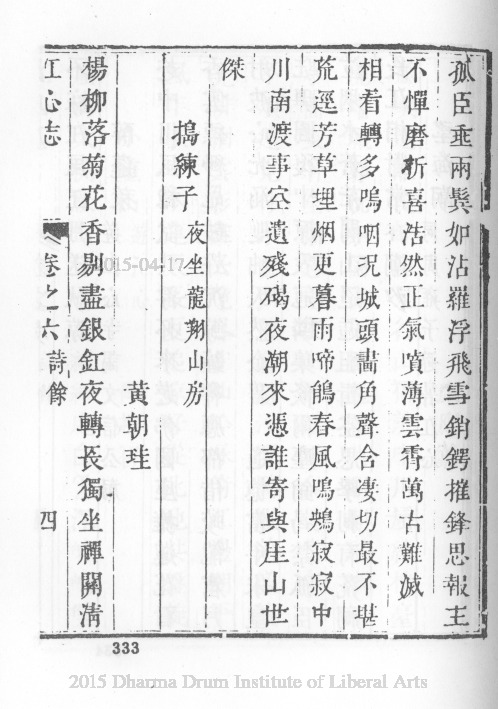 孤臣垂兩鬂如沾羅浮飛雪銷鍔摧鋒思報主
不憚磨斫喜浩然正氣噴薄雲霄萬古難滅
相看轉多嗚咽况城頭畵角聲含凄切最不堪
荒逕芳草埋烟更暮雨啼鵑春風鳴鴂寂寂中
川南渡事空遺殘碣夜潮來憑誰寄與厓山世
傑
搗練子 夜坐龍翔山房
黄朝珪
楊柳落菊花香剔盡銀釭夜轉長獨坐禪關清
江心志 卷之六詩餘 四
2015-04-17
333
2015 Dharma Drum Institute of Liberal Arts